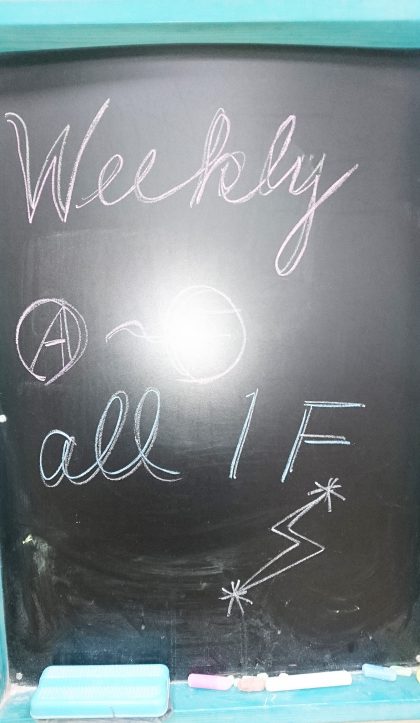 Weekly
Ⓐ ~
all 1 F